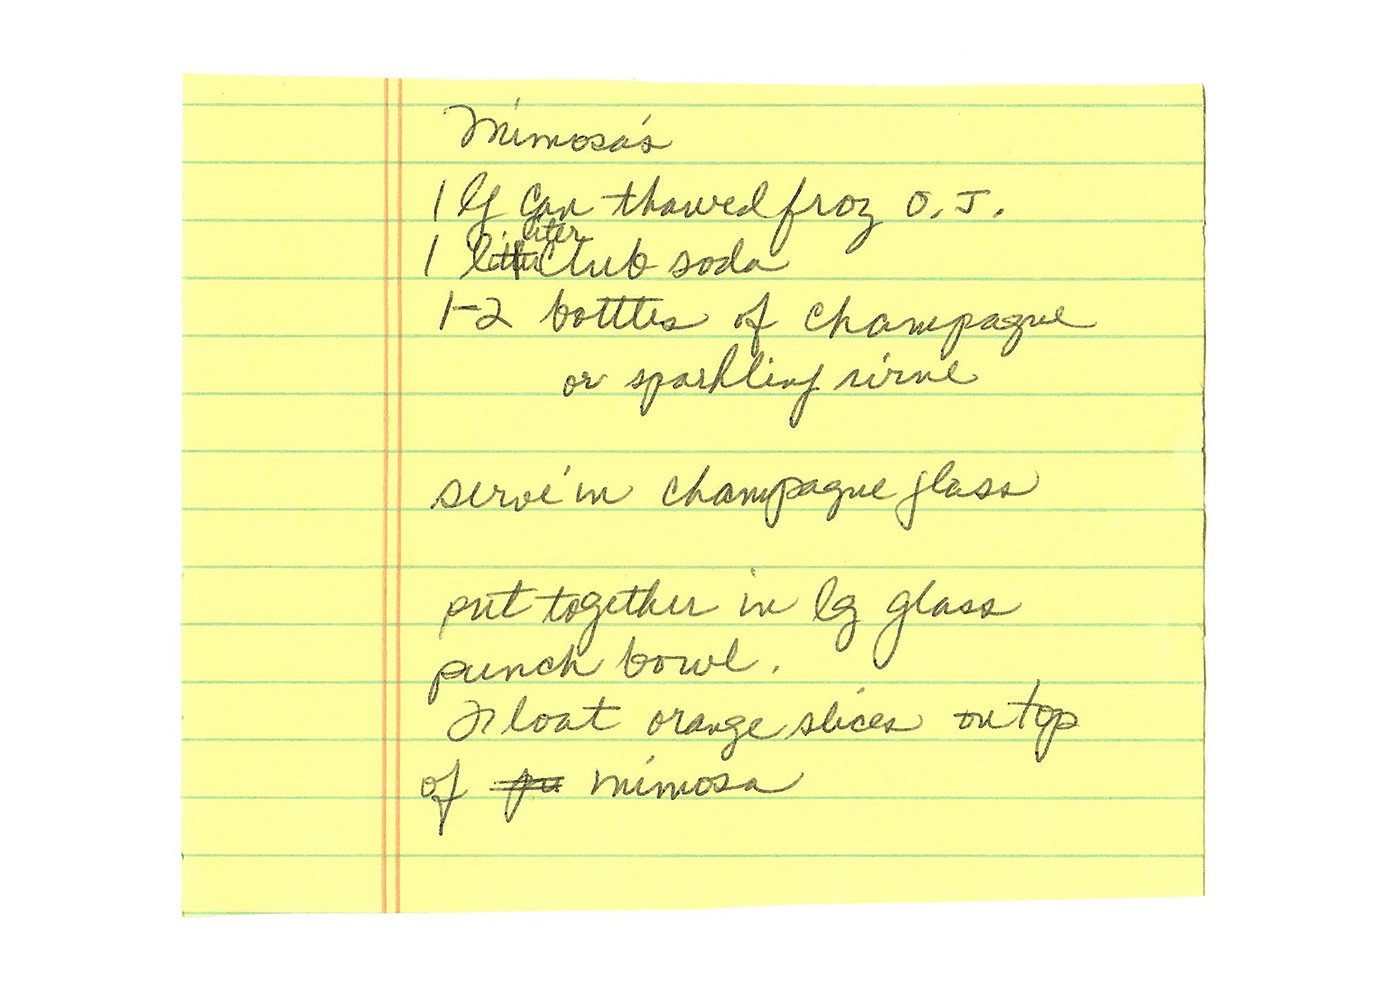 Mimosa's
1 lg can thawed froz O.J.
1 liter club soda
1-2 bottles of champagne
or sparkling wine
serve in champagne glass
put together in lg glass
punch bowl.
Float orange slices on top
of mimosa